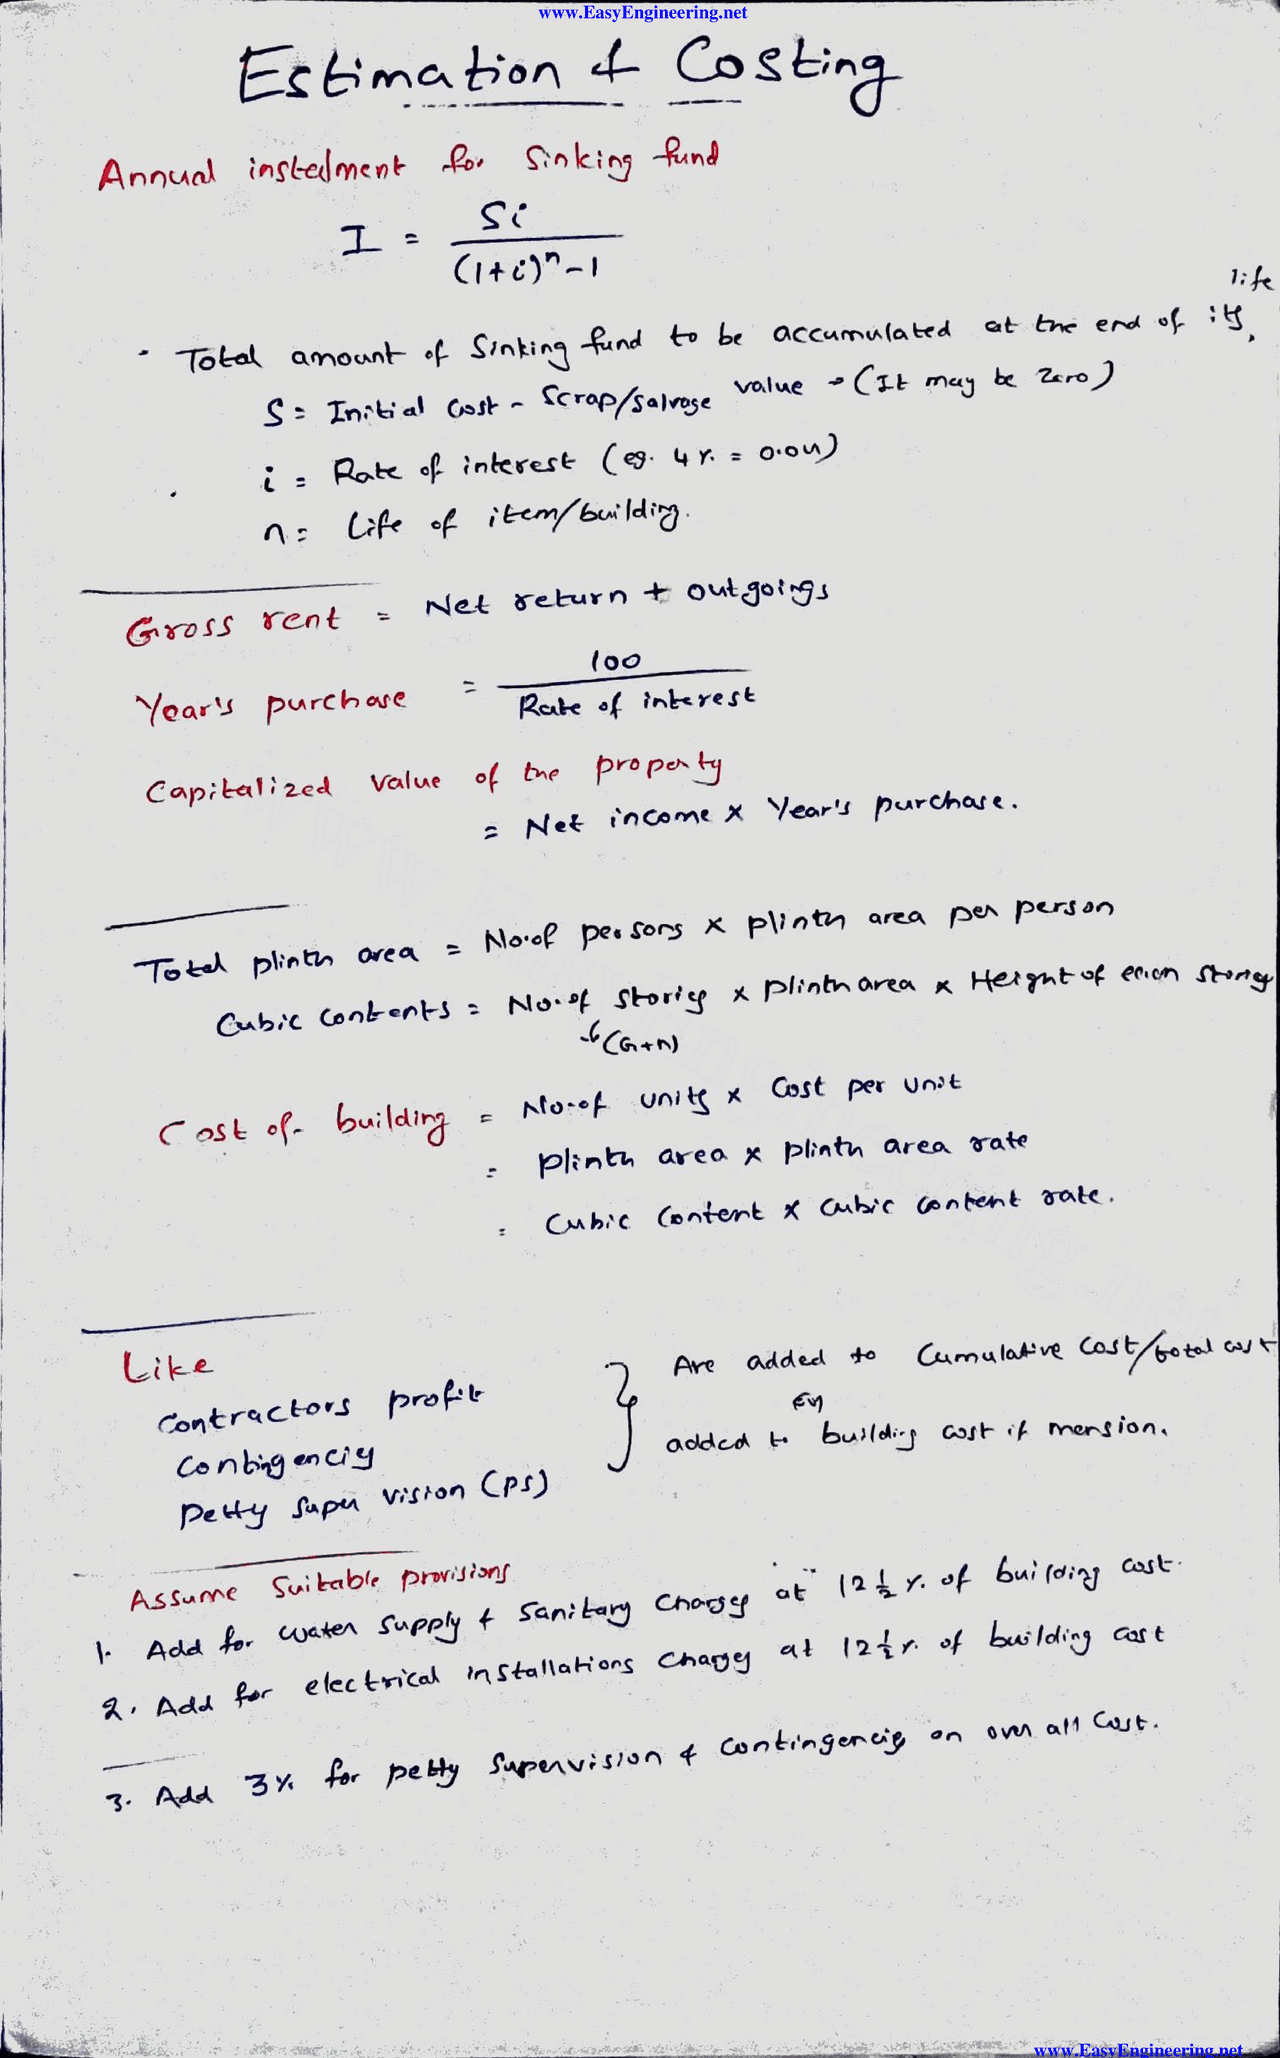 www.EasyEngineering.net
Estimation & Costing
Annual instalment for Sinking fund
I = Si / (1+i)^n - 1
life
• Total amount of Sinking fund to be accumulated at the end of its,
S = Initial Cost - Scrap/Salvage value → (It may be Zero)
i = Rate of interest (eg. 4 % = 0.04)
n = Life of item/building.
Gross rent = Net return + outgoings
Year's purchase = 100 / Rate of interest
Capitalized value of the property
= Net income x Year's purchase.
Total plinth area = No.of persons x plinth area per person
Cubic contents = No.of stories x plinth area x Height of each storey
(G+n)
Cost of building = No.of units x Cost per unit
= plinth area x plinth area rate
= Cubic Content x Cubic Content rate.
Like
Contractors profit
Contingencies
Petty super vision (PS)
Are added to Cumulative Cost/total cost
added to building cost if mension.
Assume Suitable provisions
1. Add for water supply & Sanitary Charges at 12 1/2 % of building cost.
2. Add for electrical installations Charges at 12 1/2 % of building cost
3. Add 3% for petty Supervision & Contingencies on over all Cost.
www.EasyEngineering.net
www.EasyEngineering.net